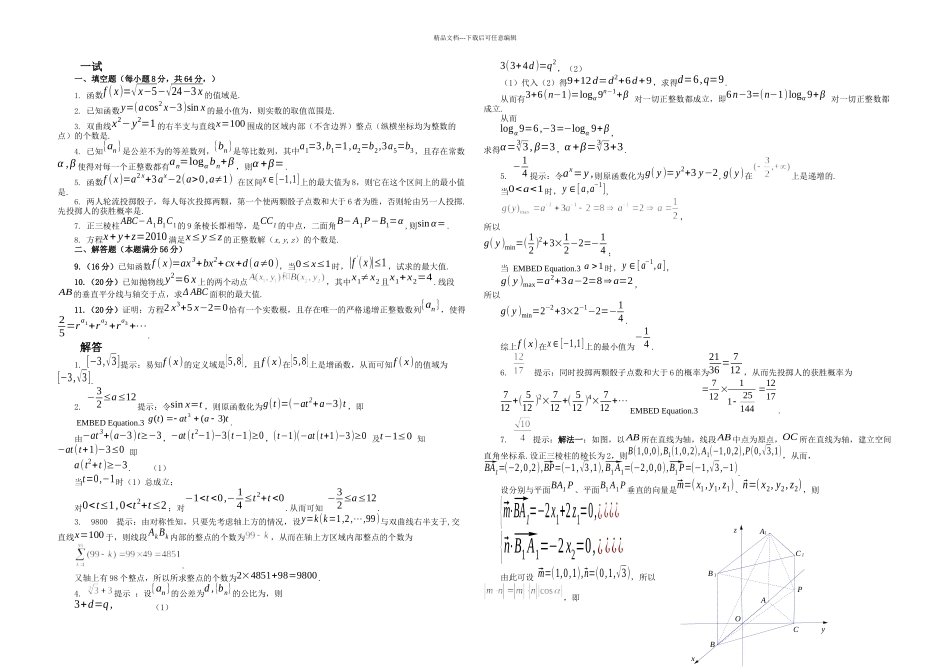 精品文档---下载后可任意编辑
一试
一、填空题（每小题8分，共64分，）
1. 函数f(x)=√x−5−√24−3x的值域是.
2. 已知函数y=(a cos²x−3)sin x的最小值为，则实数的取值范围是.
3. 双曲线x²−y²=1的右半支与直线x=100围成的区域内部（不含边界）整点（纵横坐标均为整数的
点）的个数是.
4. 已知{aₙ}是公差不为的等差数列，{bₙ}是等比数列，其中a₁=3,b₁=1,a₂=b₂,3a₅=b₃，且存在常数
α,β使得对每一个正整数都有aₙ=logₐbₙ+β，则α+β=.
5. 函数f(x)=a²ˣ+3aˣ−2(a>0,a≠1) 在区间x∈[−1,1]上的最大值为8，则它在这个区间上的最小值
是.
6. 两人轮流投掷骰子，每人每次投掷两颗，第一个使两颗骰子点数和大于6者为胜，否则轮由另一人投掷.
先投掷人的获胜概率是.
7. 正三棱柱ABC−A₁B₁C₁的9条棱长都相等，是CCₗ的中点，二面角B−A₁P−B₁=α,则sin α=.
8. 方程x+y+z=2010满足x≤y≤z的正整数解（x,y,z）的个数是.
二、解答题（本题满分56分）
9. （16分）已知函数f(x)=ax³+bx²+cx+d(a≠0)，当0≤x≤1时，|f'(x)|≤1，试求的最大值.
10.（20分）已知抛物线y²=6x上的两个动点A(x₁,y₁)和B(x₂,y₂)，其中x₁≠x₂且x₁+x₂=4.线段
AB的垂直平分线与轴交于点，求ΔABC面积的最大值.
11.（20分）证明：方程2x³+5x−2=0恰有一个实数根，且存在唯一的严格递增正整数数列{aₙ}，使得
2/5=r^a₁+r^a₂+r^a₃+⋯
.
解答
1. [−3,√3]提示：易知f(x)的定义域是[5,8]，且f(x)在[5,8]上是增函数，从而可知f(x)的值域为
[−3,√3].
2. −3/2≤a≤12 提示：令sin x=t，则原函数化为g(t)=(−at²+a−3)t，即
EMBED Equation.3 g(t)=−at³+(a−3)t.
由−at³+(a−3)t≥−3，−at(t²−1)−3(t−1)≥0，(t−1)(−at(t+1)−3)≥0 及t−1≤0 知
−at(t+1)−3≤0 即
a(t²+t)≥−3. （1）
当t=0,−1时（1）总成立；
对0<t≤1,0<t²+t≤2；对−1<t<0,−1/4≤t²+t<0.从而可知−3/2≤a≤12.
3. 9800 提示：由对称性知，只要先考虑轴上方的情况，设y=k(k=1,2,⋯,99)与双曲线右半支于，交
直线x=100于，则线段AₖBₖ内部的整点的个数为99−k，从而在轴上方区域内部整点的个数为
∑(99−k)=99×49=4851
.
又轴上有98个整点，所以所求整点的个数为2×4851+98=9800.
4. ∛3+3 提示：设{aₙ}的公差为d,{bₙ}的公比为，则
3+d=q, （1）
3(3+4d)=q²，（2）
（1）代入（2）得9+12d=d²+6d+9，求得d=6,q=9.
从而有3+6(n−1)=log_α9ⁿ⁻¹+β 对一切正整数都成立，即6n−3=(n−1)log_α9+β 对一切正整数都
成立.
从而
log_α9=6,−3=−log_α9+β，
求得α=∛3,β=3，α+β=∛3+3.
5. −1/4 提示：令aˣ=y,则原函数化为g(y)=y²+3y−2，g(y)在(−3/2,+∞)上是递增的.
当0<a<1时，y∈[a,a⁻¹]，
g(y)max=a⁻²+3a⁻¹−2=8⇒a⁻¹=2⇒a=1/2
，
所以
g(y)min=(1/2)²+3×1/2−2=−1/4；
当 EMBED Equation.3 a>1时，y∈[a⁻¹,a]，
g(y)max=a²+3a−2=8⇒a=2，
所以
g(y)min=2⁻²+3×2⁻¹−2=−1/4.
综上f(x)在x∈[−1,1]上的最小值为−1/4.
6. 12/17 提示：同时投掷两颗骰子点数和大于6的概率为21/36=7/12，从而先投掷人的获胜概率为
7/12+(5/12)²×7/12+(5/12)⁴×7/12+⋯ EMBED Equation.3 =7/12×1/(1−25/144)=12/17.
7. √10/4 提示：解法一：如图，以AB所在直线为轴，线段AB中点为原点，OC所在直线为轴，建立空间
直角坐标系.设正三棱柱的棱长为2，则B(1,0,0),B₁(1,0,2),A₁(−1,0,2),P(0,√3,1)，从而，
BA₁=(−2,0,2),BP=(−1,√3,1),B₁A₁=(−2,0,0),B₁P=(−1,√3,−1).
设分别与平面BA₁P、平面B₁A₁P垂直的向量是m=(x₁,y₁,z₁)、n=(x₂,y₂,z₂)，则
{m·BA₁=−2x₁+2z₁=0,¿¿¿¿
{n·B₁A₁=−2x₂=0,¿¿¿¿
由此可设 m=(1,0,1),n=(0,1,√3)，所以
|m·n|=|m|·|n||cosα|，即
z
A₁
C₁
B₁
P
A
O
C
y
B
x